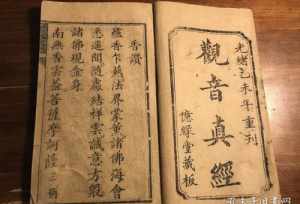 光緒乙未年重刊
觀音真經
憶疑堂藏板
香讚
爐香乍爇法界蒙薰諸佛海會
悉遙聞隨處結祥雲誠意方殷
諸佛現金身
南無香雲葢菩薩摩訶薩三稱